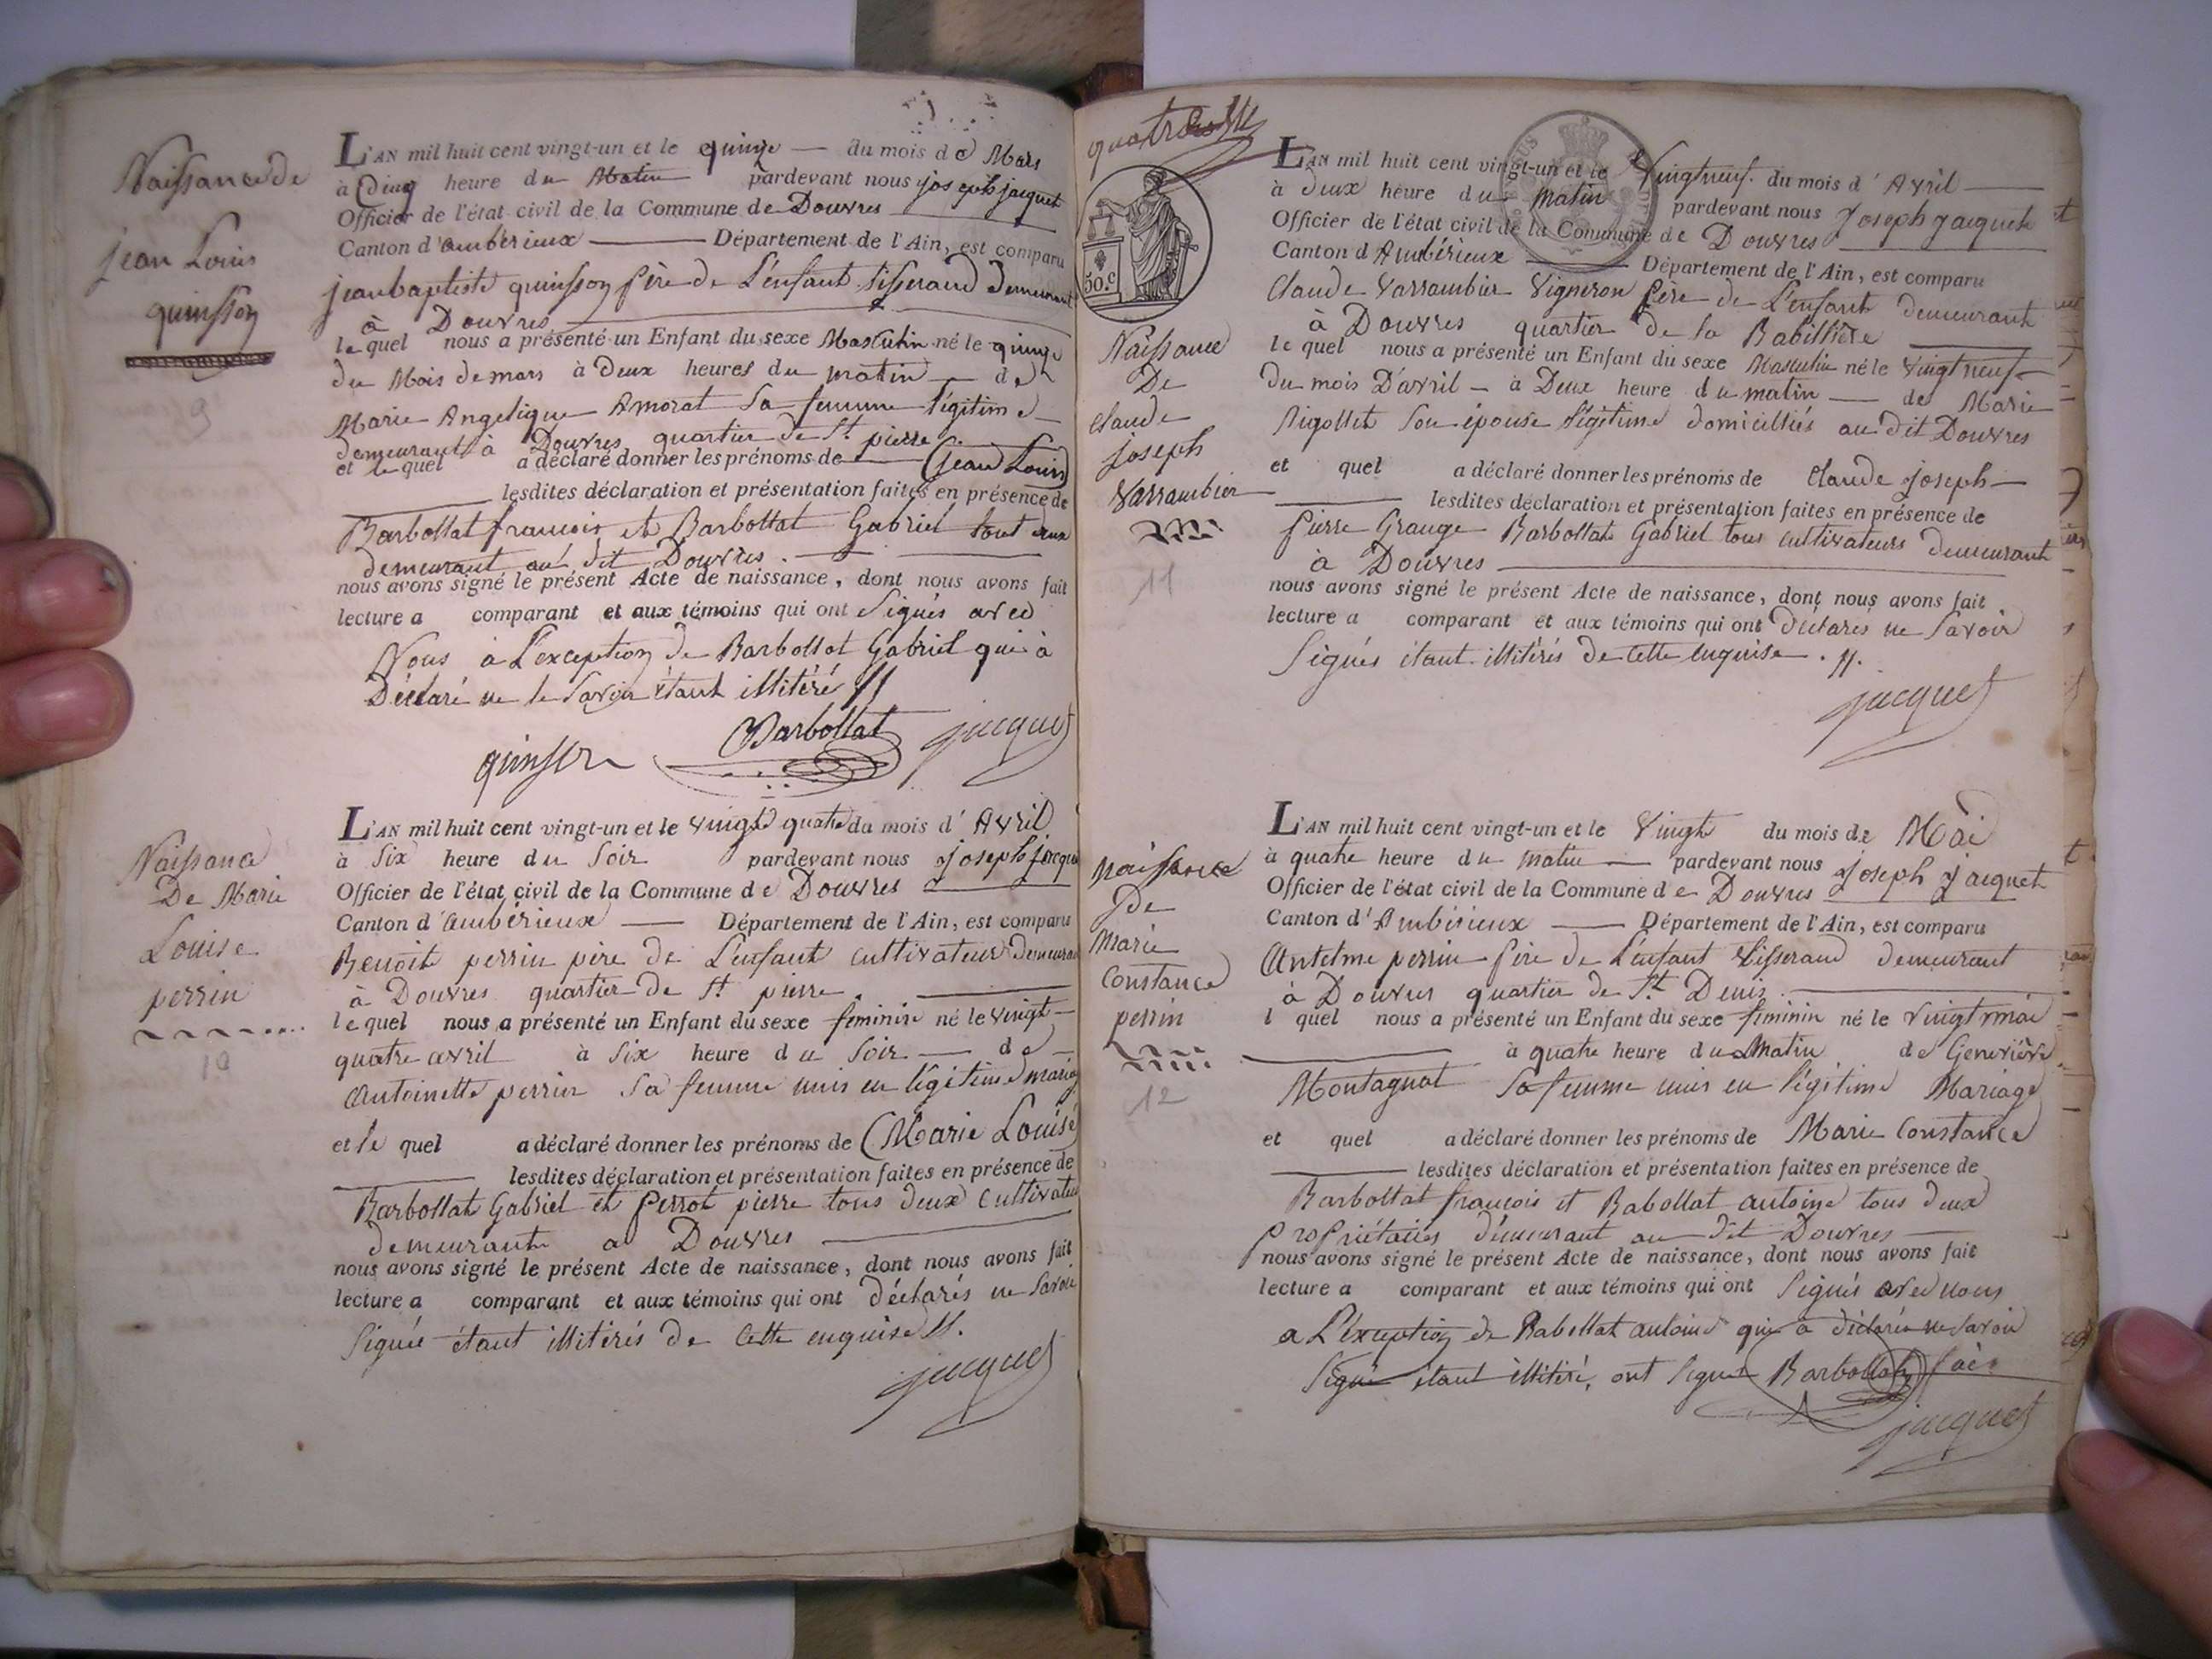 Naissance de
jean Louis
quinsson
9
L'AN mil huit cent vingt-un et le quinze — du mois de Mars
à Cinq heure du Matin pardevant nous joseph jacquet
Officier de l'état civil de la Commune de Douvres
Canton d'ambérieux — Département de l'Ain, est comparu
jean baptiste quinsson père de L'enfant tisserand demeurant
à Douvres
le quel nous a présenté un Enfant du sexe Masculin né le quinze
du Mois de mars à deux heures du matin — de
Marie Angelique Amorat Sa femme légitime
demeurant à Douvres quartier de St pierre
et le quel a déclaré donner les prénoms de — (jean Louis)
lesdites déclaration et présentation faites en présence de
Barbollat francois et Barbollat Gabriel tout deux
demeurant au dit Douvres.
nous avons signé le présent Acte de naissance, dont nous avons fait
lecture a comparant et aux témoins qui ont Signés avec
Nous à L'exception de Barbollat Gabriel qui à
Déclaré ne le Savoir étant illitéré //
quinson Barbollat jacquet
Naissance
De Marie
Louise
perrin
10
L'AN mil huit cent vingt-un et le vingt quatre du mois d'Avril
à Six heure du Soir pardevant nous joseph jacquet
Officier de l'état civil de la Commune de Douvres
Canton d'ambérieux — Département de l'Ain, est comparu
Benoit perrin père de L'enfant cultivateur demeurant
à Douvres quartier de St pierre
le quel nous a présenté un Enfant du sexe feminin né le vingt
quatre avril à Six heure du Soir — de
Antoinette perrin Sa femme unis en légitime mariage
et le quel a déclaré donner les prénoms de (Marie Louise)
lesdites déclaration et présentation faites en présence de
Barbollat Gabriel et Perrot pierre tous deux Cultivateur
demeurant a Douvres
nous avons signé le présent Acte de naissance, dont nous avons fait
lecture a comparant et aux témoins qui ont déclarés ne Savoir
Signée étant illitérés de Cette enquise //.
jacquet
quatre
50.C
Naissance
De
Claude
joseph
Varrambier
11
L'AN mil huit cent vingt-un et le Vingtneuf du mois d'Avril
à deux heure du Matin pardevant nous Joseph Jacquet
Officier de l'état civil de la Commune de Douvres
Canton d'Ambérieux — Département de l'Ain, est comparu
Claude Varrambier Vigneron Père de L'enfant demeurant
à Douvres quartier de la Babillière
le quel nous a présenté un Enfant du sexe Masculin né le Vingtneuf
du mois D'avril — à Deux heure du matin — de Marie
Rigollet Son épouse légitime domiciliés au dit Douvres
et quel a déclaré donner les prénoms de Claude Joseph —
lesdites déclaration et présentation faites en présence de
Pierre Grange Barbollat Gabriel tous cultivateurs demeurant
à Douvres
nous avons signé le présent Acte de naissance, dont nous avons fait
lecture a comparant et aux témoins qui ont Déclarés ne Savoir
Signés étant illitérés de Cette enquise. //.
jacquet
Naissance
De
Marie
Constance
perrin
12
L'AN mil huit cent vingt-un et le Vingt du mois de Mai
à quatre heure du matin — pardevant nous Joseph Jacquet
Officier de l'état civil de la Commune de Douvres
Canton d'Ambérieux — Département de l'Ain, est comparu
Antelme perrin Père de L'enfant tisserand demeurant
à Douvres quartier de St Denis
l quel nous a présenté un Enfant du sexe feminin né le Vingt mai
à quatre heure du Matin de Geneviève
Montagnat Sa femme unis en légitime Mariage
et quel a déclaré donner les prénoms de Marie Constance
lesdites déclaration et présentation faites en présence de
Barbollat françois et Babollat antoine tous deux
Propriétaires demeurant au dit Douvres
nous avons signé le présent Acte de naissance, dont nous avons fait
lecture a comparant et aux témoins qui ont Signés avec nous
a L'éxception de Babollat antoine qui a déclarée ne Savoir
Signé étant illitéré, ont Signé Barbollat
jacquet